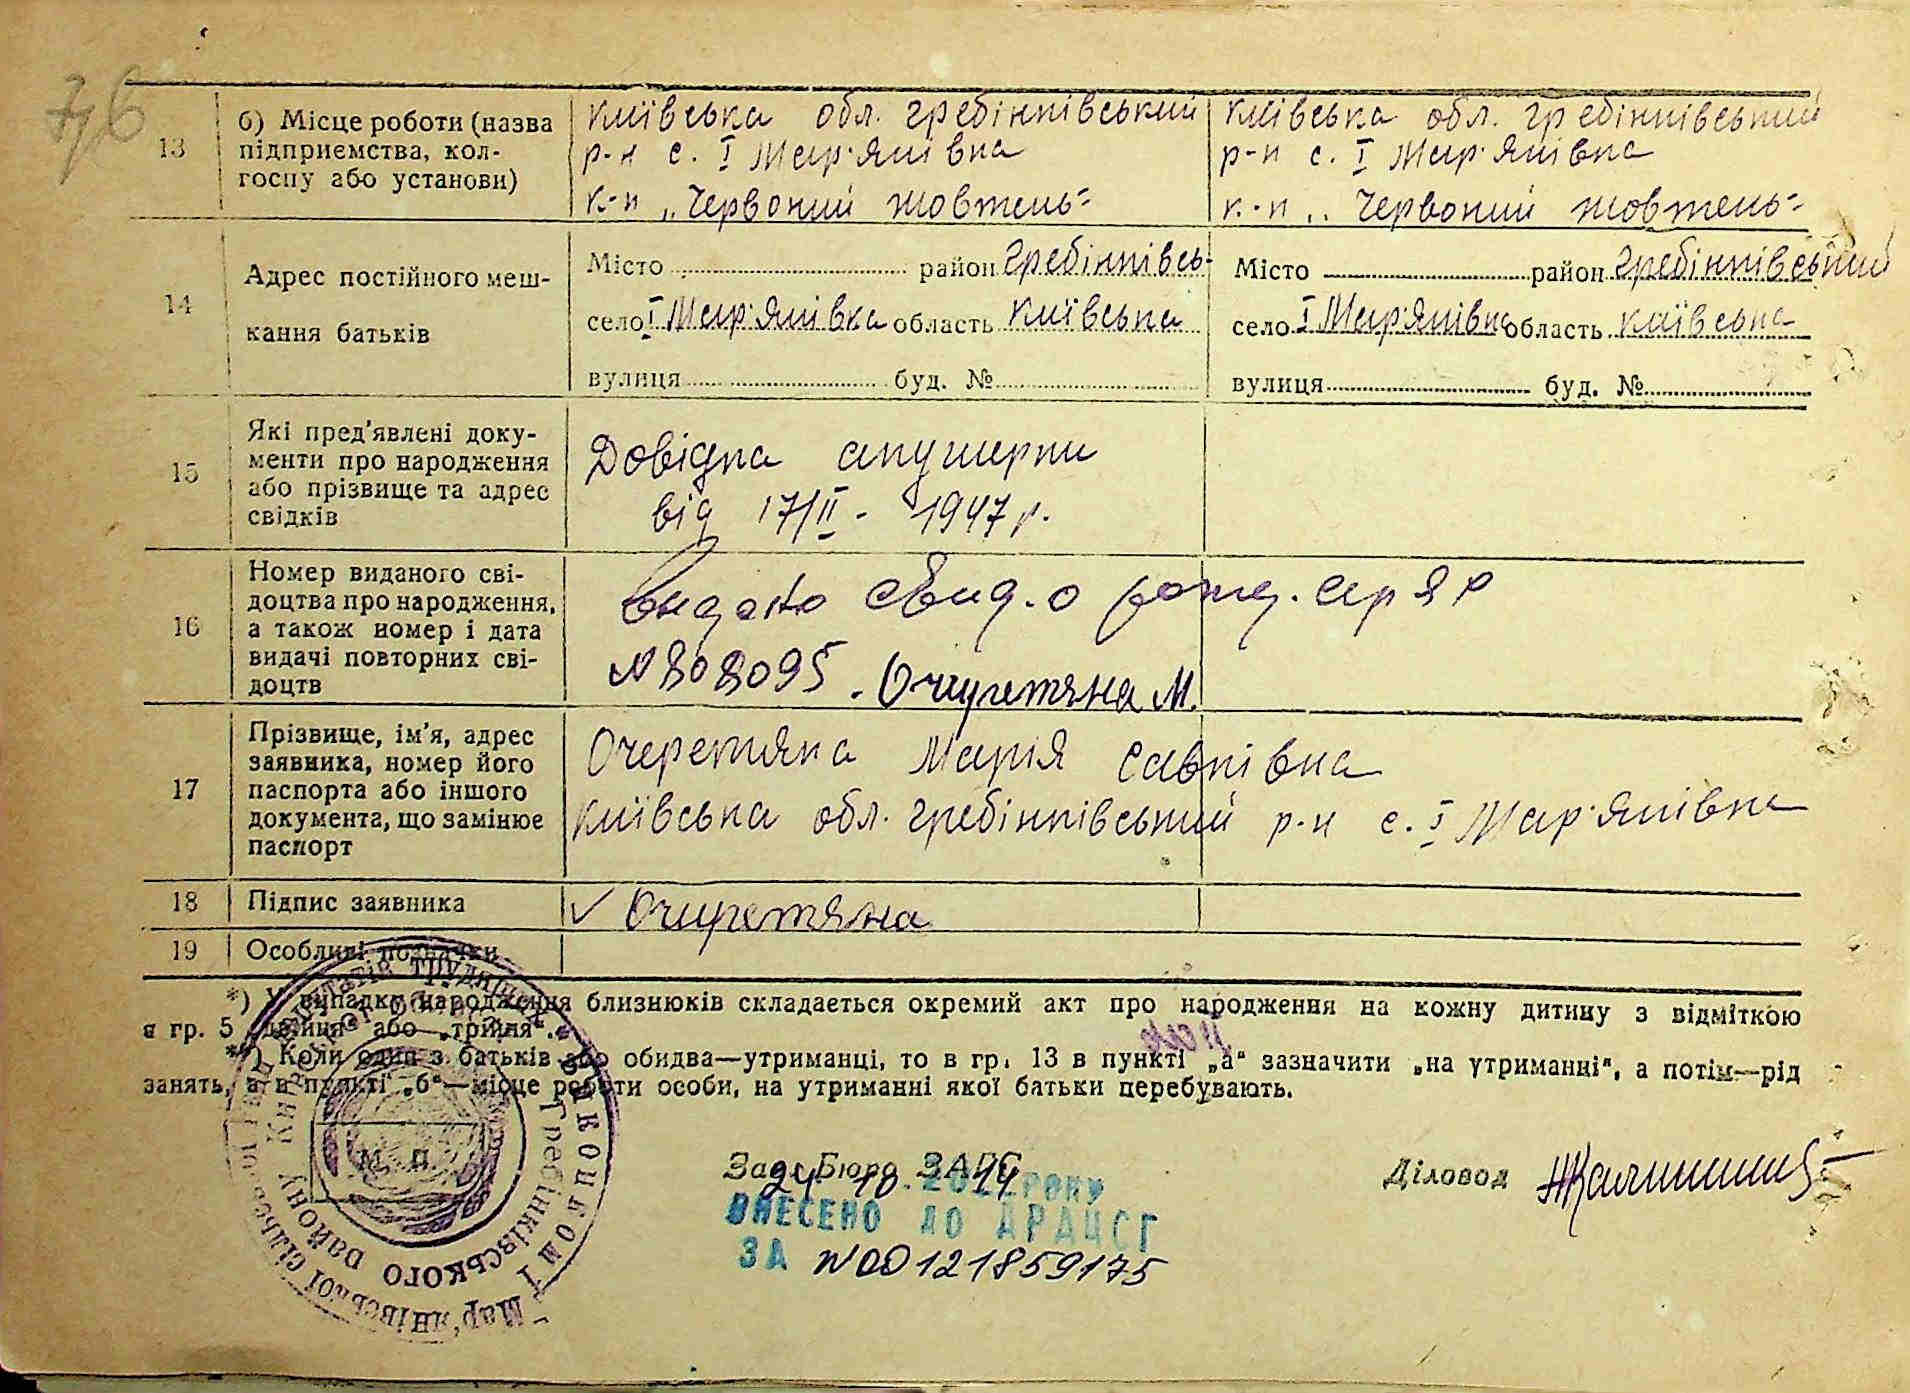 76
13
б) Місце роботи (назва
підприємства, кол-
госпу або установи)
Київська обл. Гребінківський
р-н с. І Мар'янівка
к-п „Червоний жовтень"
Київська обл. Гребінківський
р-н с. І Мар'янівка
к-п „Червоний жовтень"
14
Адрес постійного меш-
кання батьків
Місто район Гребінківсь-
село І Мар'янівка область Київська
вулиця буд. №
Місто район Гребінківський
село І Мар'янівка область Київська
вулиця буд. №
15
Які пред'явлені доку-
менти про народження
або прізвище та адрес
свідків
Довідка акушерки
від 17/ІІ - 1947 р.
16
Номер виданого сві-
доцтва про народження,
а також номер і дата
видачі повторних сві-
доцтв
Видано свид. о рожд. сер ЯР
№ 808095. Очиретяна М.
17
Прізвище, ім'я, адрес
заявника, номер його
паспорта або іншого
документа, що замінює
паспорт
Очеретяна Марія Савківна
Київська обл. Гребінківський р-н с. І Мар'янівка
18
Підпис заявника
✓ Очиретяна
19
Особливі позначки
*) У випадку народження близнюків складається окремий акт про народження на кожну дитину з відміткою
в гр. 5 „двійня" або „трійня".
**) Коли один з батьків або обидва—утриманці, то в гр. 13 в пункті „а" зазначити „на утриманні", а потім—рід
занять, а в пункті „б"—місце роботи особи, на утриманні якої батьки перебувають.
М. П.
Зав. Бюро ЗАГС
Діловод
24 10. 2014 РОКУ
ВНЕСЕНО ДО ДРАЦСГ
ЗА №00121859175
Виконком І Мар'янівської сільської Ради депутатів трудящих
Гребінківського району Київської області